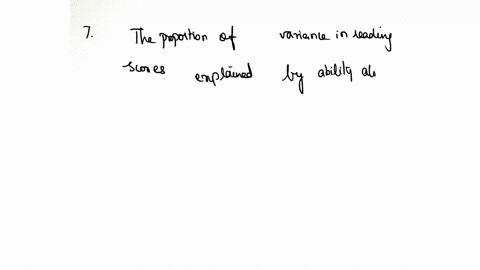 7. The proportion of variance in reading
scores explained by ability al